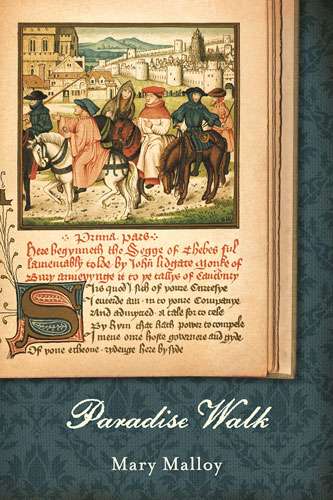 Prima pars
Here begynneth the Segge of Thebes ful
lamentably tolde by John lidgate Monke of
Bury anneyynge it to ye tallys of Caunbury
Sirs quod I sith of youre Curtesye
I euerde am in to youre Companye
And admytted a tale for to tele
By hym that hath power to compele
I mene oure hoste governere and gyde
Of yone echeone rydenge here by syde
Paradise Walk
Mary Malloy